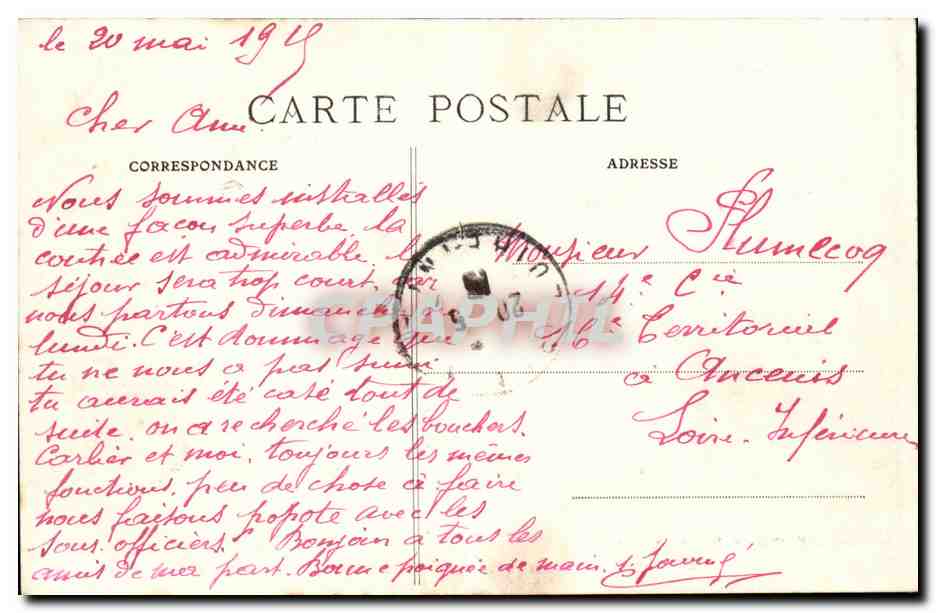 le 20 mai 1915
Cher Ami
CARTE POSTALE
CORRESPONDANCE
Nous sommes installés
d'une façon superbe. la
contrée est admirable. le
séjour sera trop court, car
nous partons dimanche ou
lundi. C'est dommage que
tu ne nous a pas suivi
tu aurais été casé tout de
suite. on a recherché les bouchers.
Carlier et moi, toujours les mêmes
fonctions, peu de chose à faire
nous faisons popote avec les
sous-officiers. Bonjour à tous les
amis de ma part. Bonne poignée de main.
ADRESSE
Monsieur Plumecoq
14e Cie
Territorial
à Ancenis
Loire-Inférieure
20 5
CPAPHIL